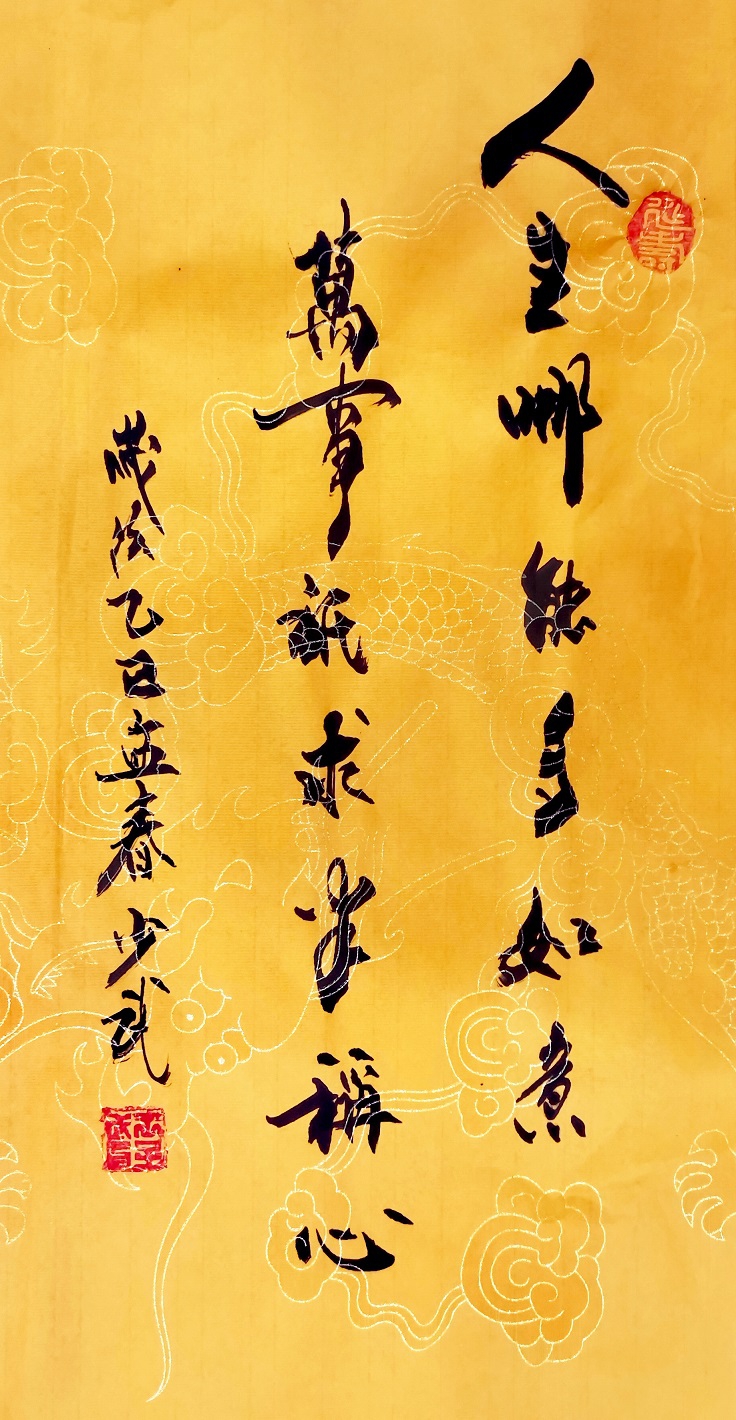 延壽
人生哪能多如意
萬事祇求半稱心
歲次乙巳孟春少武